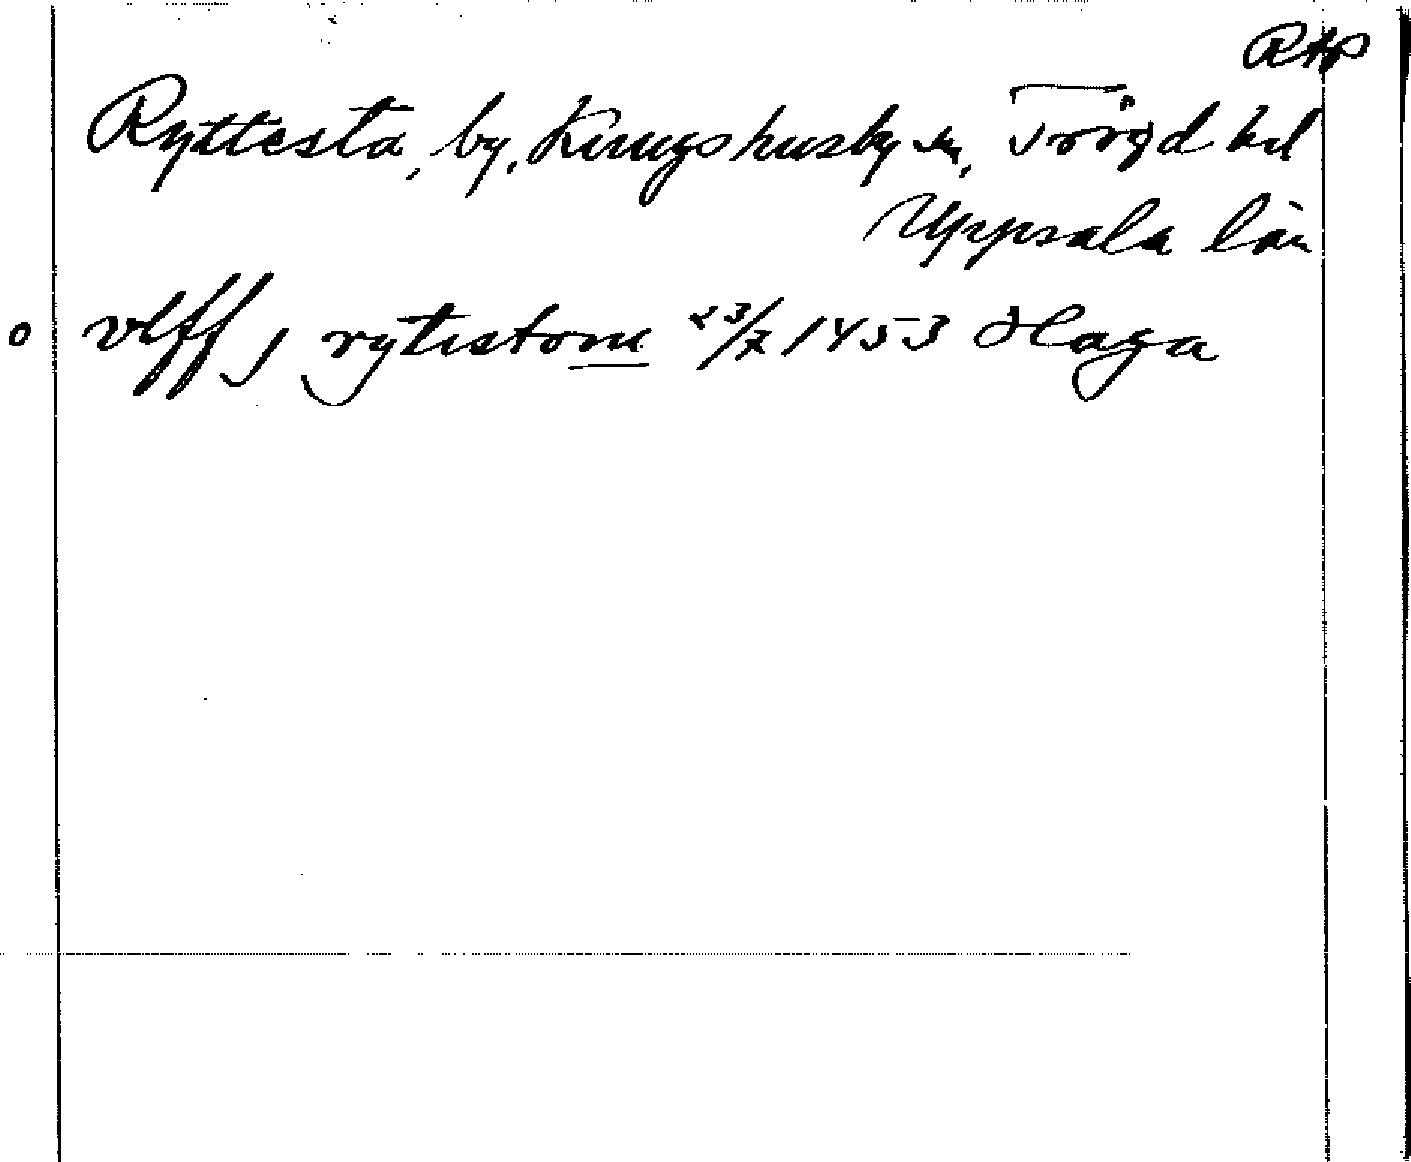 RAp
Ryttesta, by, Kungshusby sn, Trögd hd
Uppsala län
o vlff j rytistom 23/7 1453 Haga